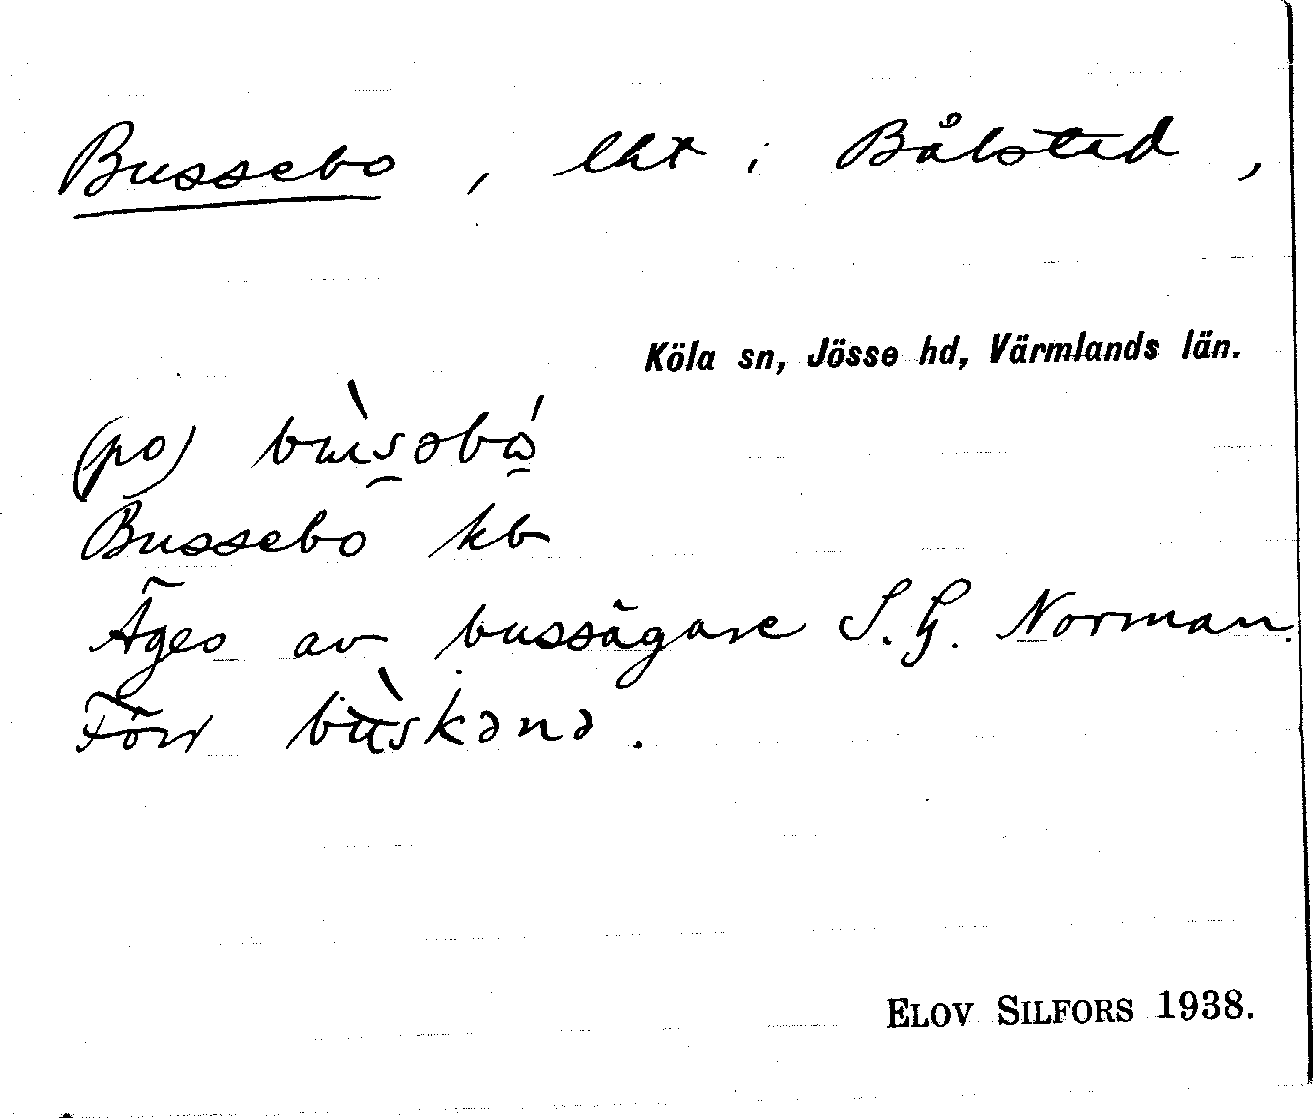 Bussebo, lht i Bålstad,
Köla sn, Jösse hd, Värmlands län.
(po) bùsəbó
Bussebo kb
Äges av bussägare S. G. Norman.
Förr bùskənə.
ELOV SILFORS 1938.